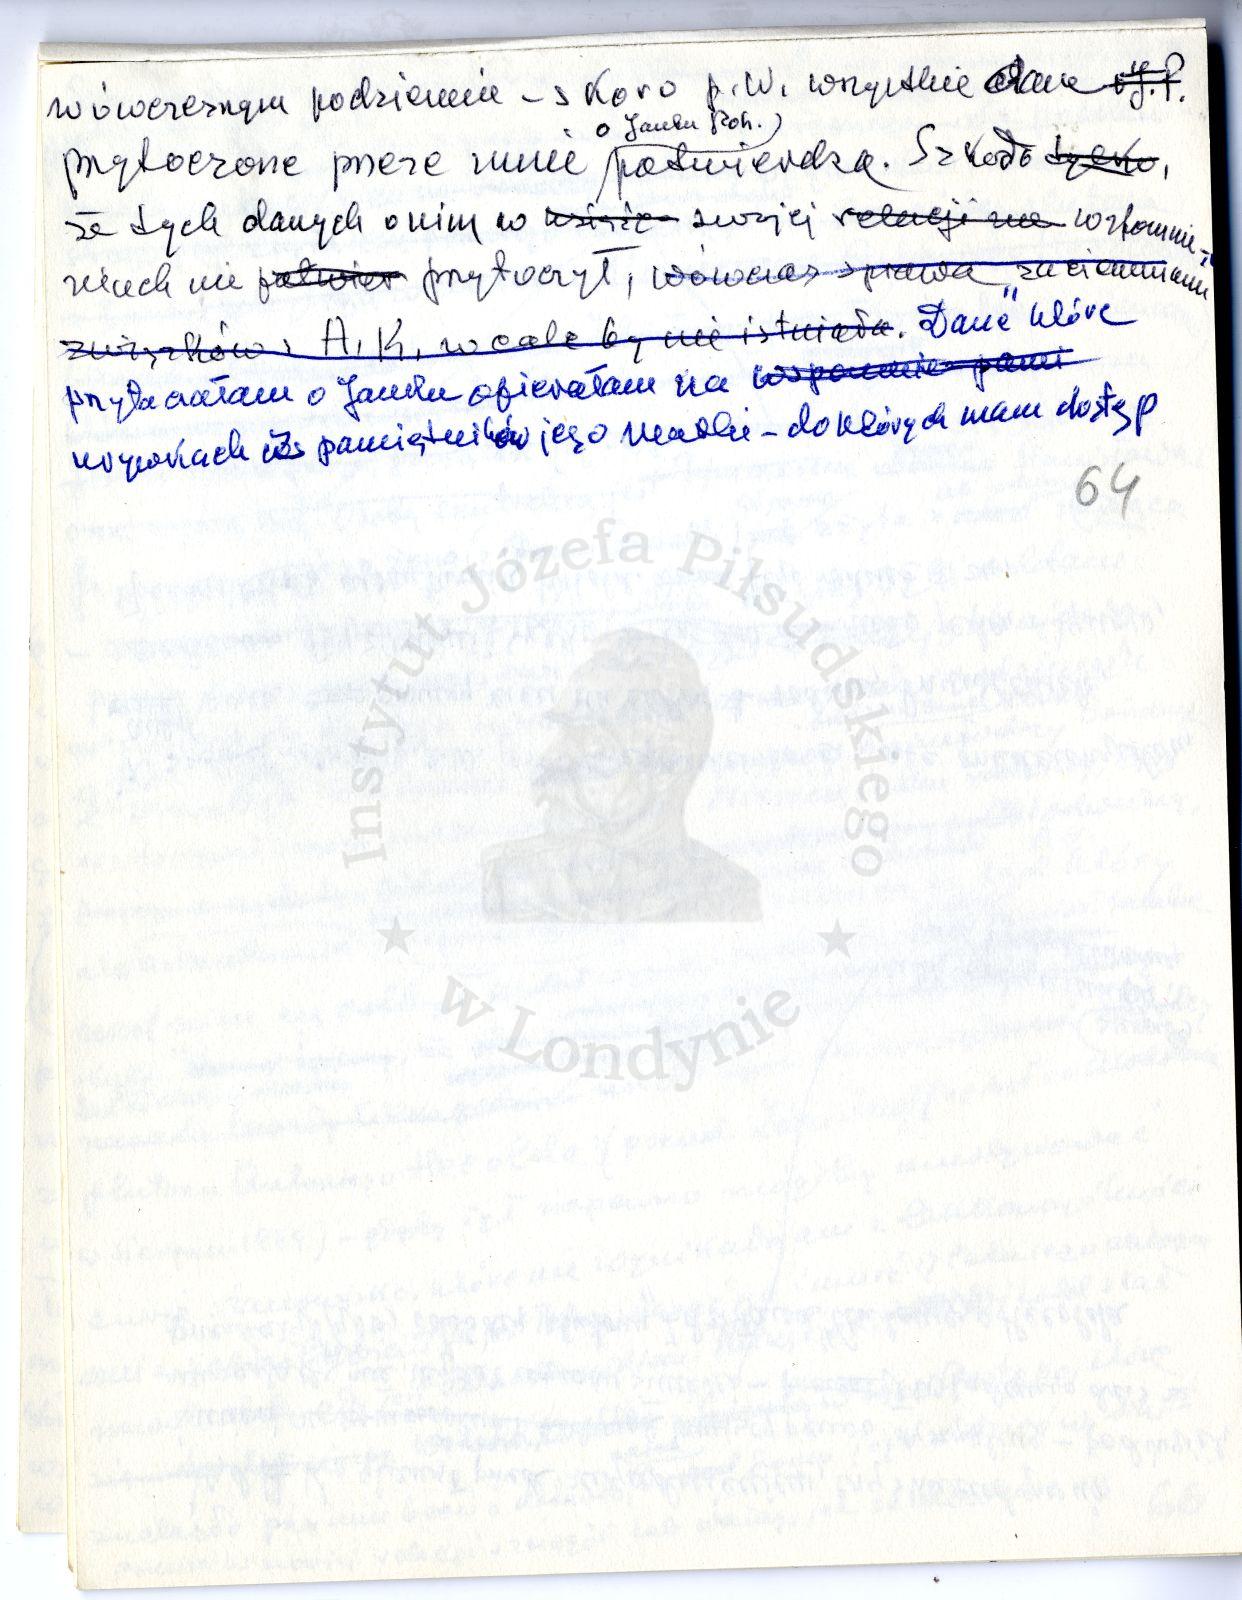 wówczesnym podziemiu - skoro p. W. wszystkie dane J.P.
o Janku Roh.)
przytoczone przeze mnie potwierdza. Szkoda tylko,
że tych danych o nim w swojej relacji na wspomnie-
niach nie przytoczył, wówczas sprawa "zacierania
związków" z A.K. wcale by nie istniała. Dane które
przytaczałam o Janku opierałam na wspomnie pami
urywkach z pamiętników jego matki - do których mam dostęp
64
Instytut Józefa Piłsudskiego
w Londynie